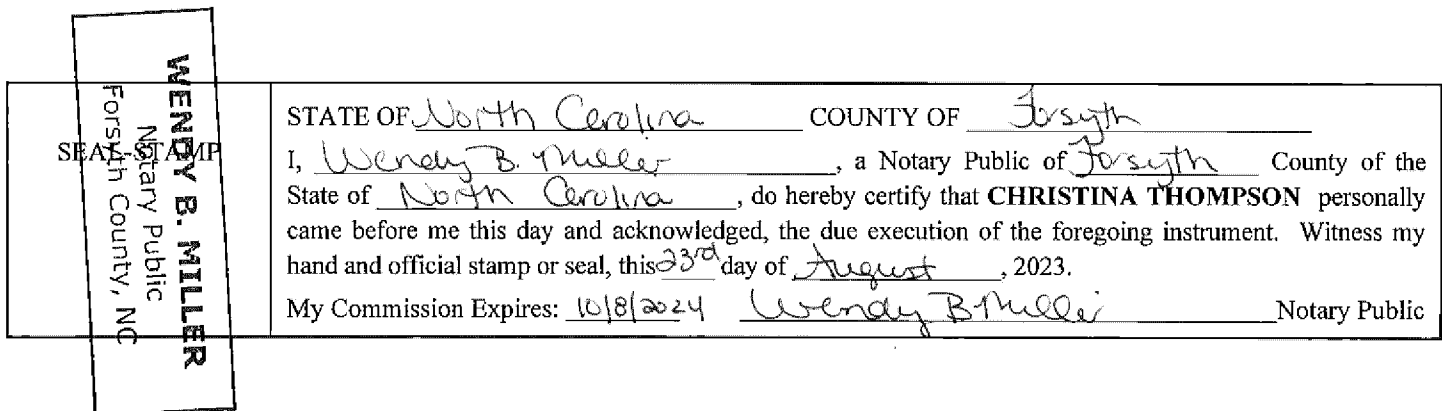 WENDY B. MILLER
Notary Public
Forsyth County, NC
SEAL-STAMP
STATE OF North Carolina COUNTY OF Forsyth
I, Wendy B. Miller, a Notary Public of Forsyth County of the
State of North Carolina, do hereby certify that CHRISTINA THOMPSON personally
came before me this day and acknowledged, the due execution of the foregoing instrument. Witness my
hand and official stamp or seal, this 23rd day of August, 2023.
My Commission Expires: 10/8/2024 Wendy B Miller Notary Public